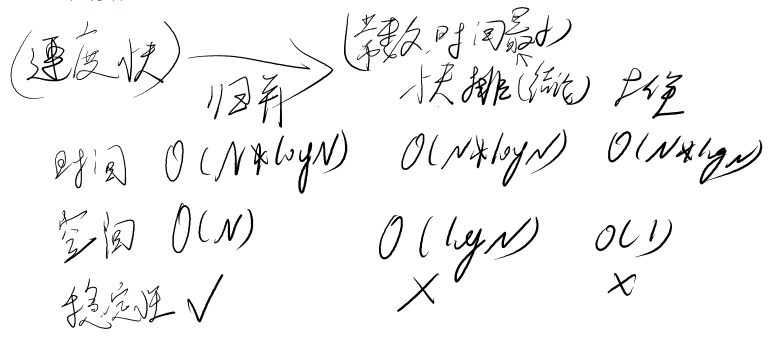 (速度快) (常数时间最小)
归并 快排(结论) 堆
时间 O(N*logN) O(N*logN) O(N*logN)
空间 O(N) O(logN) O(1)
稳定性 ✓ × ×